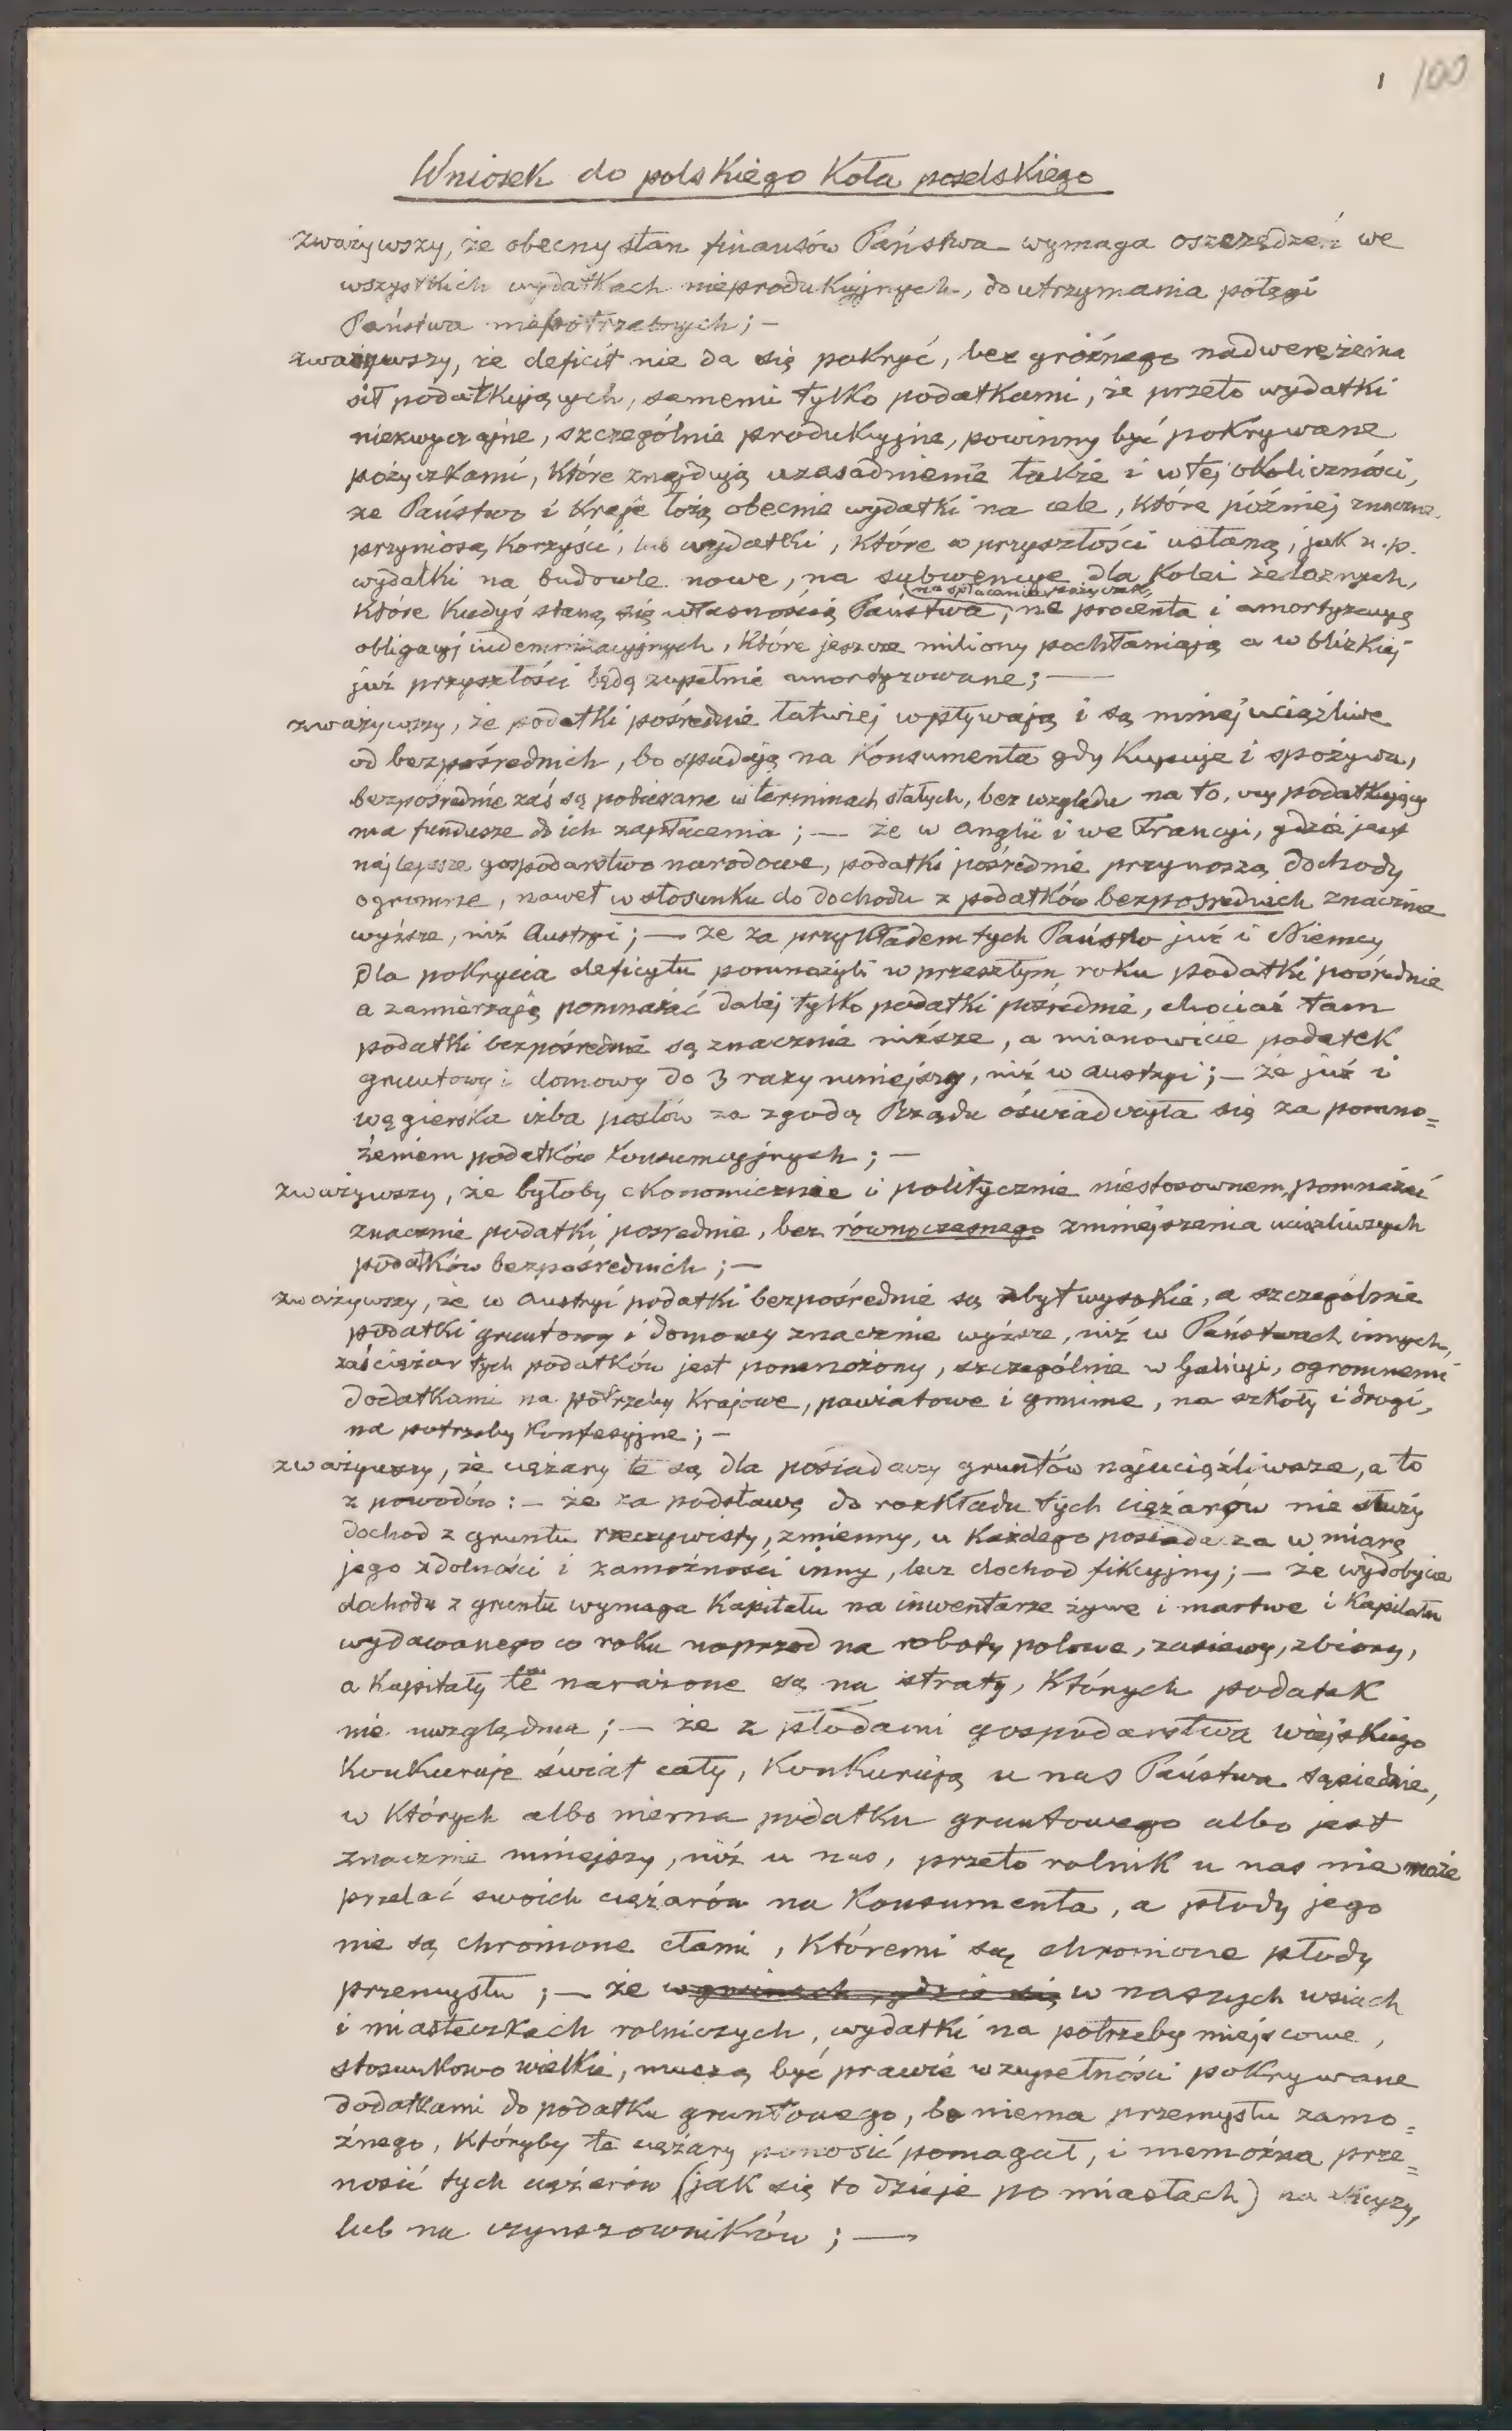 1 100
Wniosek do polskiego Koła poselskiego
zważywszy, że obecny stan finansów Państwa wymaga oszczędzeń we
wszystkich wydatkach nieprodukcyjnych, do utrzymania potęgi
Państwa niepotrzebnych; —
zważywszy, że deficit nie da się pokryć, bez groźnego nadwerężenia
sił podatkujących, samemi tylko podatkami, że przeto wydatki
niezwyczajne, szczególnie produkcyjne, powinny być pokrywane
pożyczkami, które znajdują uzasadnienie także i w tej okoliczności,
że Państwo i Kraje łożą obecnie wydatki na cele, które później znaczne
przyniosą korzyści, lub wydatki, które w przyszłości ustaną, jak n.p.
wydatki na budowle nowe, na subwencye dla Kolei żelaznych,
na spłacanie pożyczek,
które kiedyś staną się własnością Państwa, na procenta i amortyzacyą
obligacyj indemnizacyjnych, które jeszcze miliony pochłaniają a w blizkiej
już przyszłości będą zupełnie amortyzowane; —
zważywszy, że podatki pośrednie łatwiej wpływają i są mniej uciążliwe
od bezpośrednich, bo spadają na Konsumenta gdy Kupuje i spożywa,
bezpośrednie zaś są pobierane w terminach stałych, bez względu na to, czy podatkujący
ma fundusze do ich zapłacenia; — że w Anglii i we Francyi, gdzie jest
najlepsze gospodarstwo narodowe, podatki pośrednie przynoszą dochody
ogromne, nawet w stosunku do dochodu z podatków bezpośrednich znacznie
wyższe, niż Austryi; — że za przykładem tych Państw już i Niemcy
dla pokrycia deficytu pomnożyli w przeszłym roku podatki pośrednie
a zamierzają pomnażać dalej tylko podatki pośrednie, chociaż tam
podatki bezpośrednie są znacznie niższe, a mianowicie podatek
gruntowy i domowy do 3 razy mniejszy, niż w Austryi; — że już i
węgierska izba posłów za zgodą Rządu oświadczyła się za pomno=
żeniem podatków konsumcyjnych; —
zważywszy, że byłoby ekonomicznie i politycznie niestosownem, pomnażać
znacznie podatki pośrednie, bez równoczesnego zmniejszenia uciążliwszych
podatków bezpośrednich; —
zważywszy, że w Austryi podatki bezpośrednie są zbyt wysokie, a szczególnie
podatki gruntowy i domowy znacznie wyższe, niż w Państwach innych,
zaś ciężar tych podatków jest pomnożony, szczególnie w Galicyi, ogromnemi
dodatkami na potrzeby Krajowe, powiatowe i gminne, na szkoły i drogi,
na potrzeby konfesyjne; —
zważywszy, że ciężary te są dla posiadaczy gruntów najuciążliwsze, a to
z powodów: — że za podstawę do rozkładu tych ciężarów nie służy
dochod z gruntu rzeczywisty, zmienny, u każdego posiadacza w miarę
jego zdolności i zamożności inny, lecz dochod fikcyjny; — że wydobycie
dochodu z gruntu wymaga Kapitału na inwentarze żywe i martwe i Kapitału
wydawanego co roku naprzod na roboty polowe, zasiewy, zbiory,
a Kapitały te narażone są na straty, których podatek
nie uwzględnia; — że z płodami gospodarstwa wiejskiego
Konkuruje świat cały, Konkurują u nas Państwa sąsiednie,
w których albo niema podatku gruntowego albo jest
znacznie mniejszy, niż u nas, przeto rolnik u nas nie może
przelać swoich ciężarów na Konsumenta, a płody jego
nie są chronione cłami, któremi są chronione płody
przemysłu; — że w gminach, gdzie się w naszych wsiach
i miasteczkach rolniczych, wydatki na potrzeby miejscowe,
stosunkowo wielkie, muszą być prawie w zupełności pokrywane
dodatkami do podatku gruntowego, bo niema przemysłu zamo=
żnego, któryby te ciężary ponosić pomagał, i niemożna prze=
nosić tych ciężarów (jak się to dzieje po miastach) na
lub na czynszowników; —